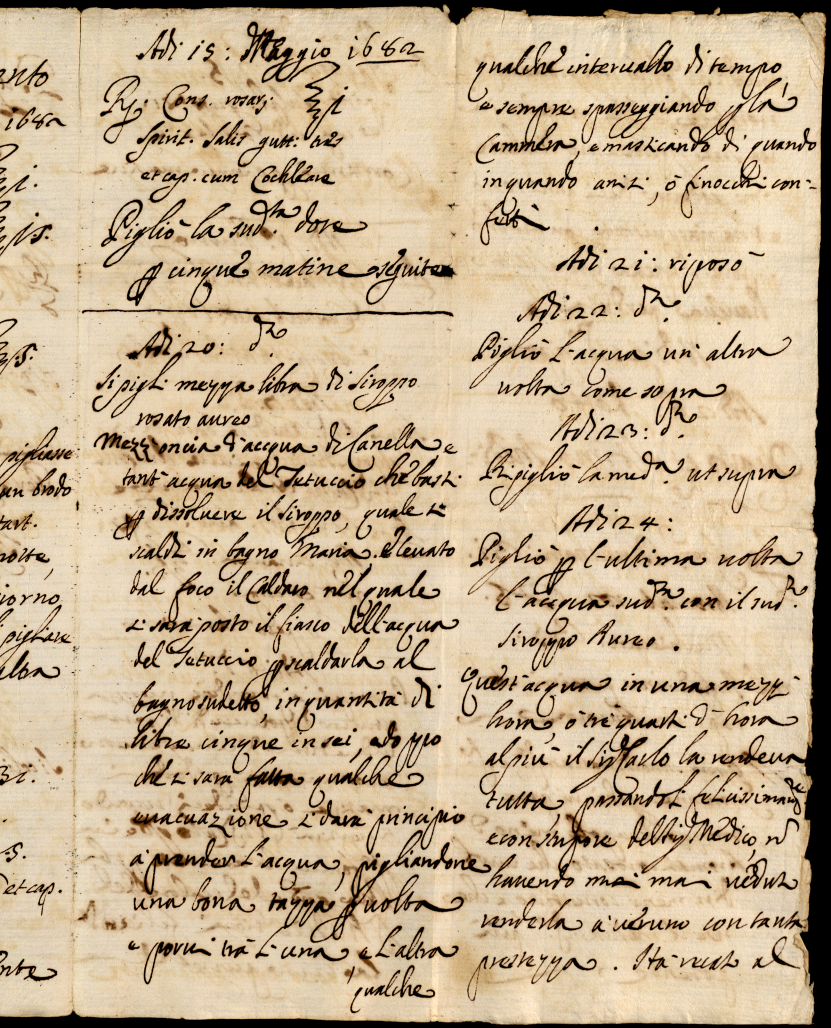 anto
1682
pigliasse
un brodo
tart.
notte,
iorno
pigliare
alba
et cap.
Adi 15: Maggio 1682
Rx. Cons. rosar. ℥j
Spirit. Salis gutt: tres
et cap. cum Cochleare
Pigliò la sud.ta dose
ꝑ cinque matine seguite
Adi 20: d.o
Si pigli mezza libra di Siroppo
rosato aureo
Mezz'oncia d'acqua di Canella e
tant'acqua del Tetuccio che basti
ꝑ dissoluere il siroppo, quale si
scaldi in bagno Maria, e leuato
dal foco il Caldaro nel quale
si sarà posto il fiasco dell'acqua
del Tetuccio ꝑ scaldarla al
bagno sudetto, in quantità di
libre cinque in sei, e doppo
che si sarà fatta qualche
euacuazione si darà principio
a prender l'acqua, pigliandone
una bona tazza ꝑ uolta
e porui trà l'una e l'altra
qualche
qualche interuallo di tempo,
e sempre spasseggiando ꝑ la
Cammera, e masticando di quando
in quando anisi, ò finocchi con-
fetti
Adi 21: riposò
Adi 22: d.o
Pigliò l'acqua un'altra
uolta come sopra
Adi 23: d.o
Ripigliò la med.a ut supra
Adi 24:
Pigliò ꝑ l'ultima uolta
l'acqua sud.a con il sud.o
siroppo Aureo.
Quest'acqua in una mezz'
hora, ò tre quarti d'hora
al più il Sig. Carlo la rendeua
tutta, passandoli felicissimam.te
e con stupore del Sig. Medico, nõ
hauendo mai mai ueduto
renderla a ueruno con tanta
prestezza. Hà recato al